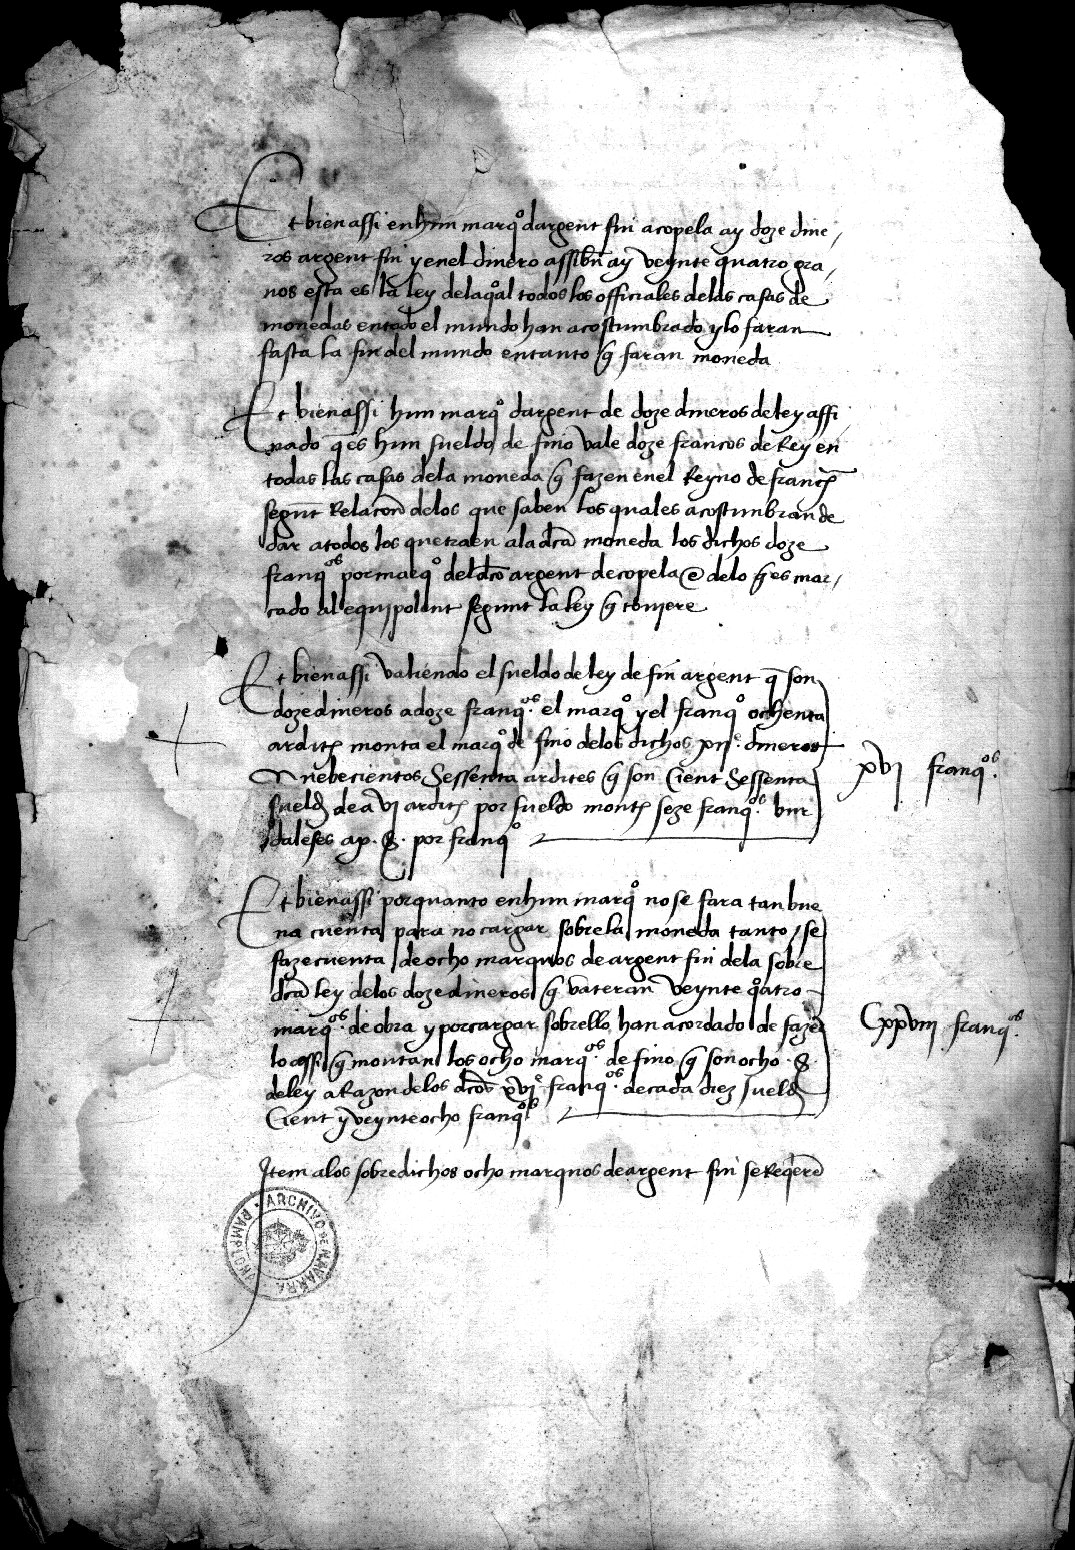 Et bien assi en hun marqo dargent fin a copela ay doze dine/
ros argent fin y en el dinero assi bn ay veynte quatro gra/
nos esta es la ley de la qoal todos los officiales de las casas de
monedas en todo el mundo han acostumbrado y lo faran
fasta la fin del mundo en tanto q̃ faran moneda
Et bien assi hun marqo dargent de doze dineros de ley affi
nado q̃ es hun sueldo de fino vale doze francos de Rey en
todas las casas de la moneda q̃ fazen en el Reyno de
segunt Relacon de los que saben los quales acostumbran de
dar a todos los que traen a la dcã moneda los dichos doze
franqos por marqo del dco argent de copela e de lo q̃ es mar/
cado al equipolent segunt la ley q̃ touiere
Et bien assi valiendo el sueldo de ley de fin argent q̃ son
doze dineros a doze franqos. el marqo y el franqo ochenta
ardits monta el marqo de fino de los dichos xije. dineros
Nuebecientos Sessenta ardites q̃ son Cient Sessenta
sueldos de a vj ardits por sueldo seze franqos.
por franqo
Et bien assi por quanto en hun marqo no se fara tan bue
na cuenta para no cargar sobre la moneda tanto / se
faze cuenta de ocho marquos de argent fin de la sobre
dcã ley de los doze dineros q̃ vateran veynte qoatro
marqos. de obra y por cargar sobrello han acordado de fazer
lo assi q̃ montan los ocho marqos. de fino q̃ son ocho . S.
de ley a Razon de los dcos xvje franqos. de cada diez sueldos
Cient y veynte ocho franqos
Item a los sobredichos ocho marquos de argent fin se Reqere
xvj franqos.
Cxxviij franqos.
ARCHIVO DE NAVARRA
PAMPLONA